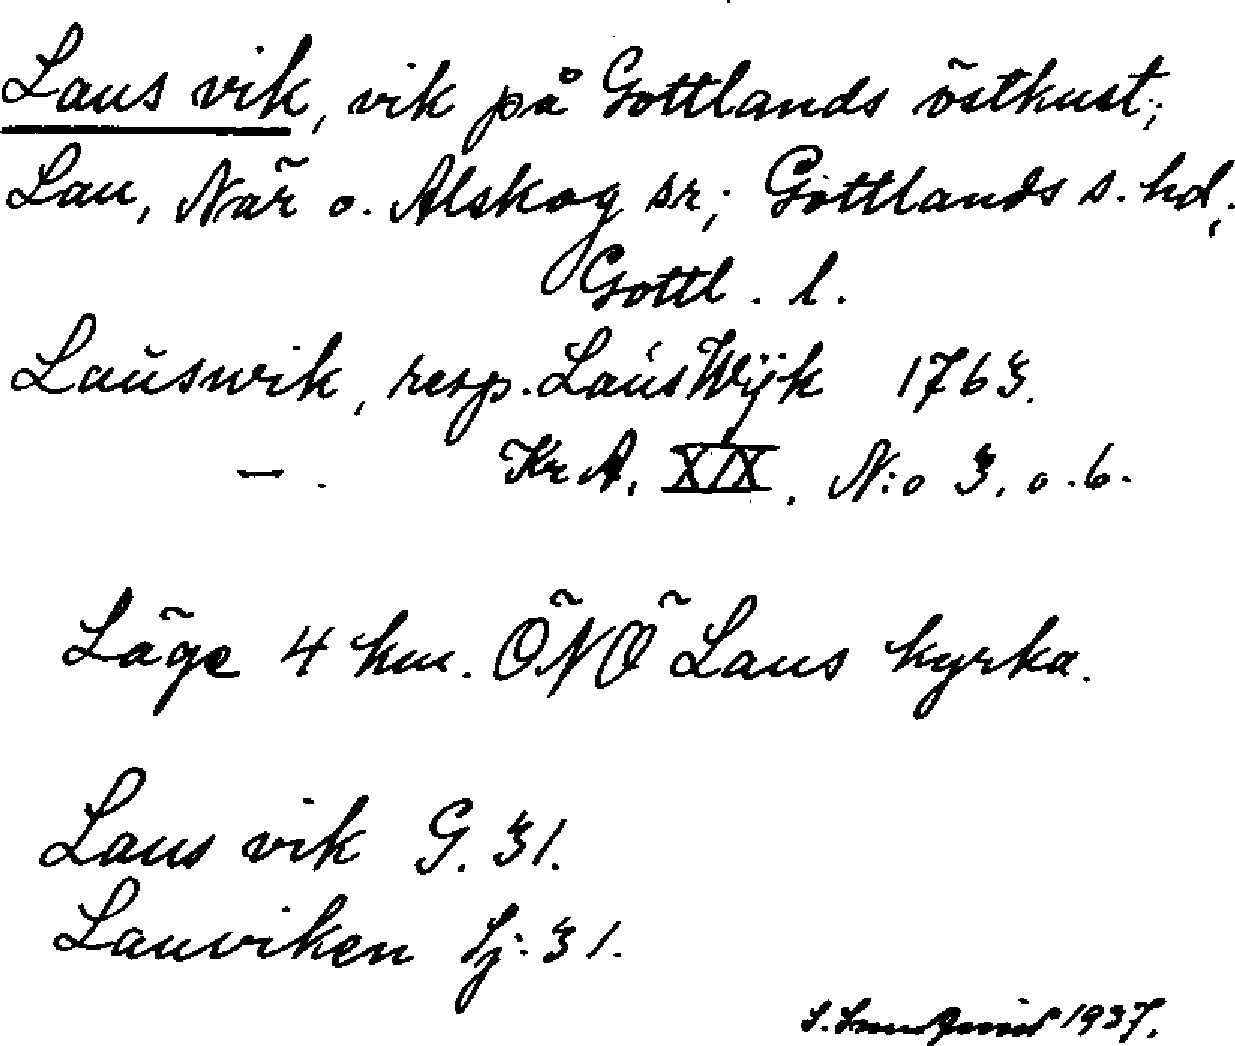 Laus vik, vik på Gottlands östkust;
Lau, När o. Alskog sr; Gottlands s. hd;
Gottl. l.
Lauswik, resp. LausWijk 1763.
— . KrA. XIX. N:o 3. o. 6.
Läge 4 km. ÖNÖ Laus kyrka.
Laus vik G. 31.
Lauviken Sj. 31.
S. 1937.